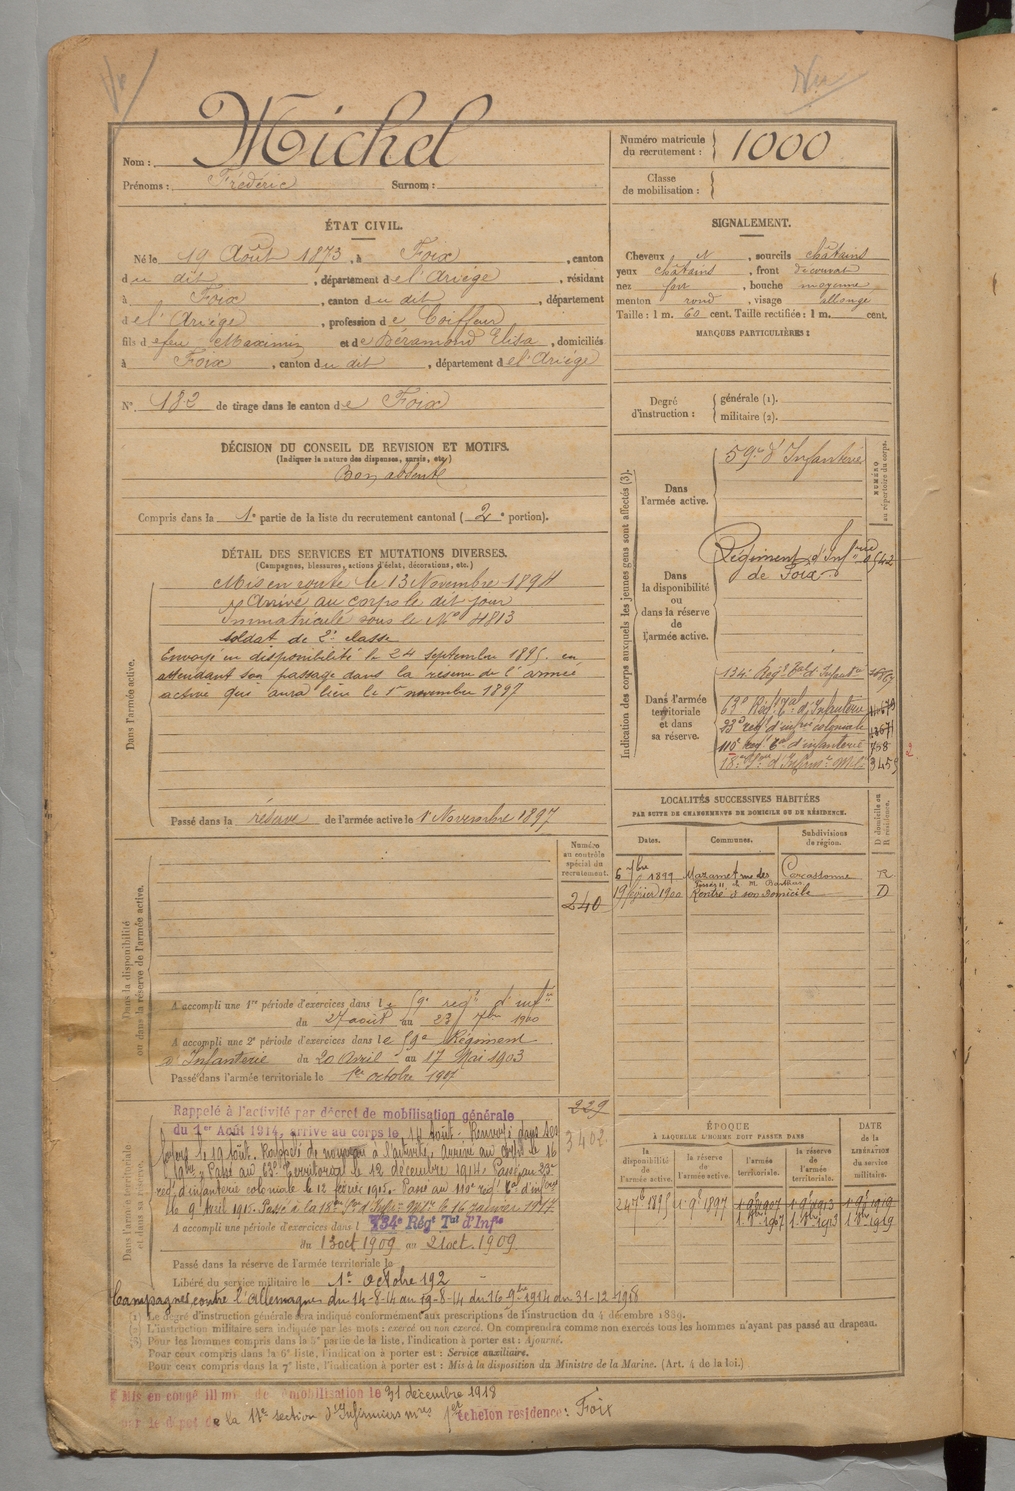 Nom : Michel
Prénoms : Frédéric Surnom :
Numéro matricule du recrutement : 1000
Classe de mobilisation :
ÉTAT CIVIL.
Né le 19 Août 1873, à Foix, canton
du dit, département de l'Ariège, résidant
à Foix, canton du dit, département
de l'Ariège, profession de Coiffeur
fils de feu Maximin et de Béramond Elisa, domiciliés
à Foix, canton du dit, département de l'Ariège
N° 182 de tirage dans le canton de Foix
SIGNALEMENT.
Cheveux et, sourcils châtains
yeux châtains, front découvert
nez fort, bouche moyenne
menton rond, visage allongé
Taille : 1 m. 60 cent. Taille rectifiée : 1 m. cent.
MARQUES PARTICULIÈRES :
Degré d'instruction : générale (1).
militaire (2).
DÉCISION DU CONSEIL DE REVISION ET MOTIFS.
(Indiquer la nature des dispenses, sursis, etc.)
Bon absent
Compris dans la 1e partie de la liste du recrutement cantonal (2e portion).
DÉTAIL DES SERVICES ET MUTATIONS DIVERSES.
(Campagnes, blessures, actions d'éclat, décorations, etc.)
Dans l'armée active.
Mis en route le 13 Novembre 1894
Arrivé au corps le dit jour
Immatriculé sous le N° 4813
soldat de 2e classe
Envoyé en disponibilité le 24 septembre 1895 en
attendant son passage dans la réserve de l'armée
active qui aura lieu le 1er novembre 1897
Passé dans la réserve de l'armée active le 1er Novembre 1897
Indication des corps auxquels les jeunes gens sont affectés (3).
NUMÉRO au répertoire du corps.
Dans l'armée active.
59e d'Infanterie
Dans la disponibilité ou dans la réserve de l'armée active.
Régiment d'Infrie
de Foix
Dans l'armée territoriale et dans sa réserve.
134e Régt Tal d'Infanterie
63e Régt Tal d'Infanterie
23e regt d'infrie coloniale
110e Regt Tal d'infanterie 758
18e Son d'Infirmrs Mres 3455
LOCALITÉS SUCCESSIVES HABITÉES
PAR SUITE DE CHANGEMENTS DE DOMICILE OU DE RÉSIDENCE.
Dates. Communes. Subdivisions de région. D domicile ou R résidence.
6 7bre 1899 Mazamet rue des Carcassonne R
19 février 1900 Rentré à son domicile D
Dans la disponibilité ou dans la réserve de l'armée active.
Numéro au contrôle spécial du recrutement.
240
A accompli une 1re période d'exercices dans le 59e regt d'infie
du 27 août au 23 7bre 1900
A accompli une 2e période d'exercices dans le 59e Régiment
d'Infanterie du 20 Avril au 17 Mai 1903
Passé dans l'armée territoriale le 1er octobre 1907
Dans l'armée territoriale et dans sa réserve.
229
3402
Rappelé à l'activité par décret de mobilisation générale
du 1er Août 1914, arrivé au corps le 14 août. Renvoyé dans ses
foyers le 19 août. Rappelé de nouveau à l'activité, arrivé au corps le 16
9bre. Passé au 63e Territorial le 12 décembre 1914. Passé au 23e
regt d'infanterie coloniale le 12 février 1915. Passé au 110e regt Tal d'infrie
le 9 Avril 1915. Passé à la 18e Son d'Infirs Mres le 16 Janvier 1917.
A accompli une période d'exercices dans l 134e Régt Tal d'Infie
du 13 oct 1909 au 21 oct. 1909.
Passé dans la réserve de l'armée territoriale le
Libéré du service militaire le 1er octobre 192
Campagnes contre l'Allemagne du 14-8-14 au 19-8-14 du 16 9bre 1914 au 31-12-1918
ÉPOQUE
À LAQUELLE L'HOMME DOIT PASSER DANS
la disponibilité de l'armée active. la réserve de l'armée active. l'armée territoriale. la réserve de l'armée territoriale. DATE de la LIBÉRATION du service militaire.
24 7bre 1895 1er 9bre 1897 1er 9bre 1907 1er 9bre 1913 1er 9bre 1919
1er 8bre 1907 1er 8bre 1913 1er 8bre 1919
(1) Le degré d'instruction générale sera indiqué conformément aux prescriptions de l'instruction du 4 décembre 1889.
(2) L'instruction militaire sera indiquée par les mots : exercé ou non exercé. On comprendra comme non exercés tous les hommes n'ayant pas passé au drapeau.
(3) Pour les hommes compris dans la 5e partie de la liste, l'indication à porter est : Ajourné.
Pour ceux compris dans la 6e liste, l'indication à porter est : Service auxiliaire.
Pour ceux compris dans la 7e liste, l'indication à porter est : Mis à la disposition du Ministre de la Marine. (Art. 4 de la loi.)
Mis en congé illimité de démobilisation le 31 décembre 1918
par le dépôt de la section d'Infirmiers mres 1er échelon résidence : Foix